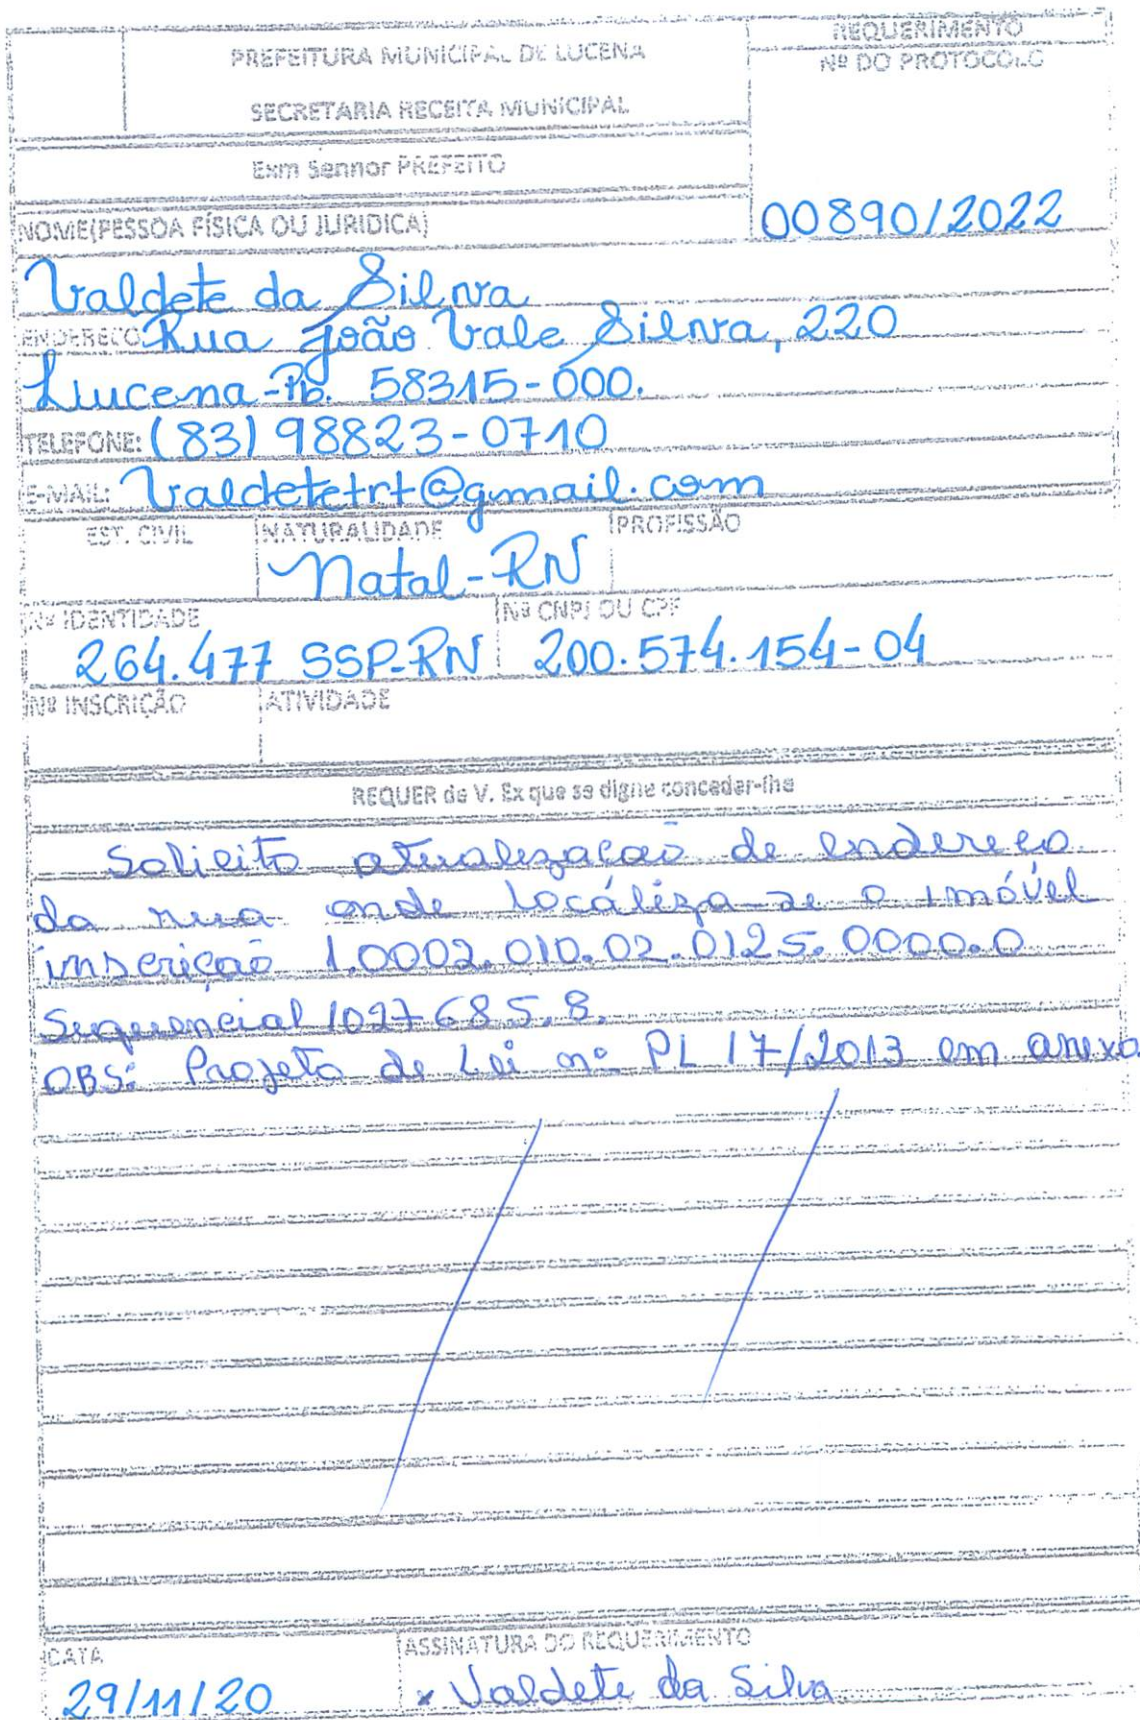 REQUERIMENTO
PREFEITURA MUNICIPAL DE LUCENA
Nº DO PROTOCOLO
SECRETARIA RECEITA MUNICIPAL
Exm Sennor PREFEITO
00890/2022
NOME(PESSOA FÍSICA OU JURIDICA)
Valdete da Silva
ENDEREÇO Rua João Vale Silva, 220
Lucena-Pb. 58315-000.
TELEFONE: (83) 98823-0710
E-MAIL: Valdetetrt@gmail.com
EST. CIVIL NATURALIDADE PROFISSÃO
Natal-RN
Nº IDENTIDADE Nº CNPJ OU CPF
264.477 SSP-RN 200.574.154-04
Nº INSCRIÇÃO ATIVIDADE
REQUER de V. Ex que se digne conceder-lhe
Solicito atualização de endereço
da rua onde localiza-se o imóvel
inscrição 1.0002.010.02.0125.0000.0
Sequencial 1027685.8.
OBS: Projeto de Lei nº PL 17/2013 em anexo
DATA ASSINATURA DO REQUERIMENTO
29/11/20 x Valdete da Silva